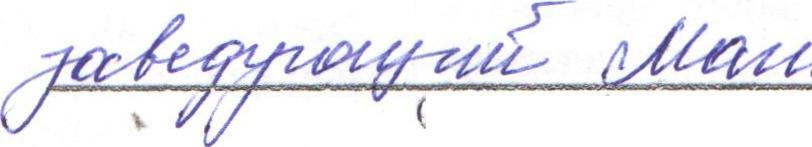 заведующий Маг